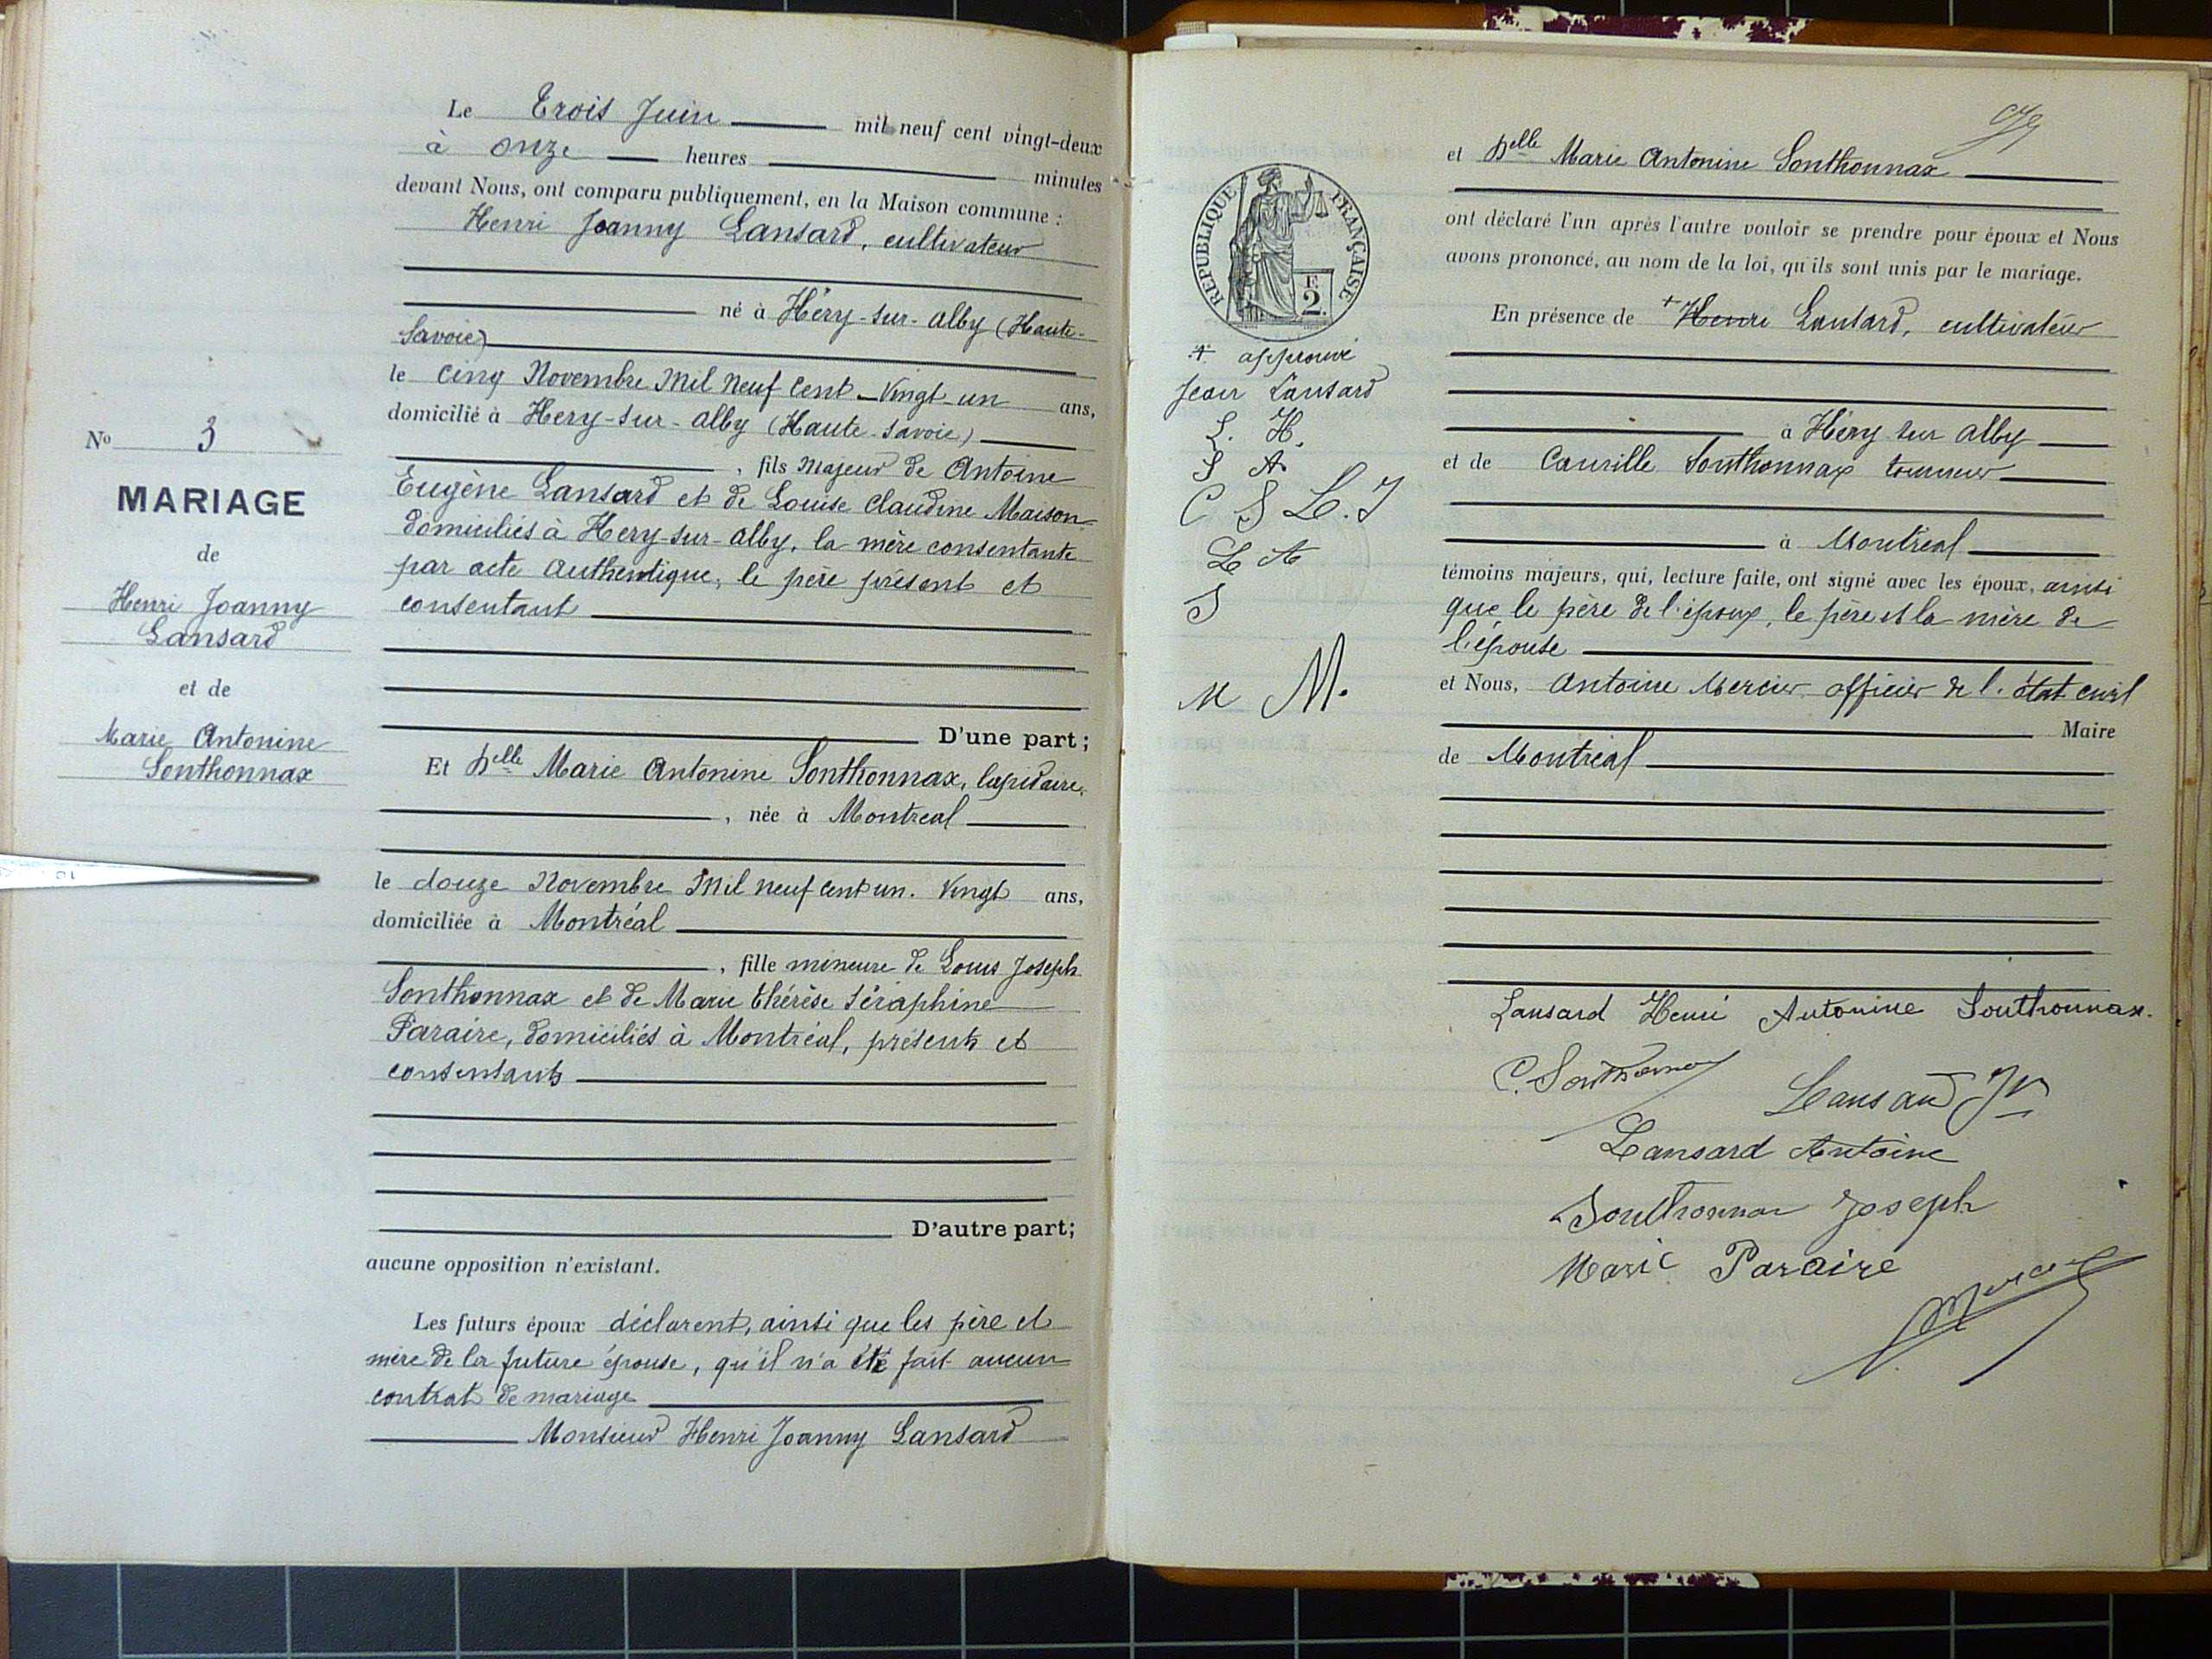 Le Trois Juin mil neuf cent vingt-deux
à onze heures minutes
devant Nous, ont comparu publiquement, en la Maison commune :
Henri Joanny Lansard, cultivateur
né à Héry-sur-Alby (Haute-
Savoie)
le cinq Novembre Mil Neuf Cent Vingt-un ans,
domicilié à Hery-sur-Alby (Haute-Savoie)
, fils Majeur de Antoine
Eugène Lansard et de Louise Claudine Maison
domiciliés à Hery-sur-Alby, la mère consentante
par acte authentique, le père présent et
consentant
D'une part;
Et Delle Marie Antonine Sonthonnax, lapidaire,
, née à Montreal
le douze Novembre Mil neuf cent un. Vingt ans,
domiciliée à Montréal
, fille mineure de Louis Joseph
Sonthonnax et de Marie Thérèse Séraphine
Paraire, domiciliés à Montréal, présents et
consentants
D'autre part;
aucune opposition n'existant.
Les futurs époux déclarent, ainsi que les père et
mère de la future épouse, qu'il n'a été fait aucun
contrat de mariage
Monsieur Henri Joanny Lansard
No 3
MARIAGE
de
Henri Joanny
Lansard
et de
Marie Antonine
Sonthonnax
et Delle Marie Antonine Sonthonnax
ont déclaré l'un après l'autre vouloir se prendre pour époux et Nous
avons prononcé, au nom de la loi, qu'ils sont unis par le mariage.
En présence de + Henri Lansard, cultivateur
à Héry sur Alby
et de Camille Sonthonnax tourneur
à Montréal
témoins majeurs, qui, lecture faite, ont signé avec les époux, ainsi
que le père de l'époux, le père et la mère de
l'épouse
et Nous, Antoine Mercier officier de l'état civil
Maire
de Montréal
RÉPUBLIQUE FRANÇAISE
F
2.
+ approuvé
Jean Lansard
L. H.
S A
C S L. J
L A
S
M M.
Lansard Henri Antonine Sonthonnax.
C. Sonthonnax Lansard Jn
Lansard Antoine
Sonthonnax Joseph
Marie Paraire
Mercier